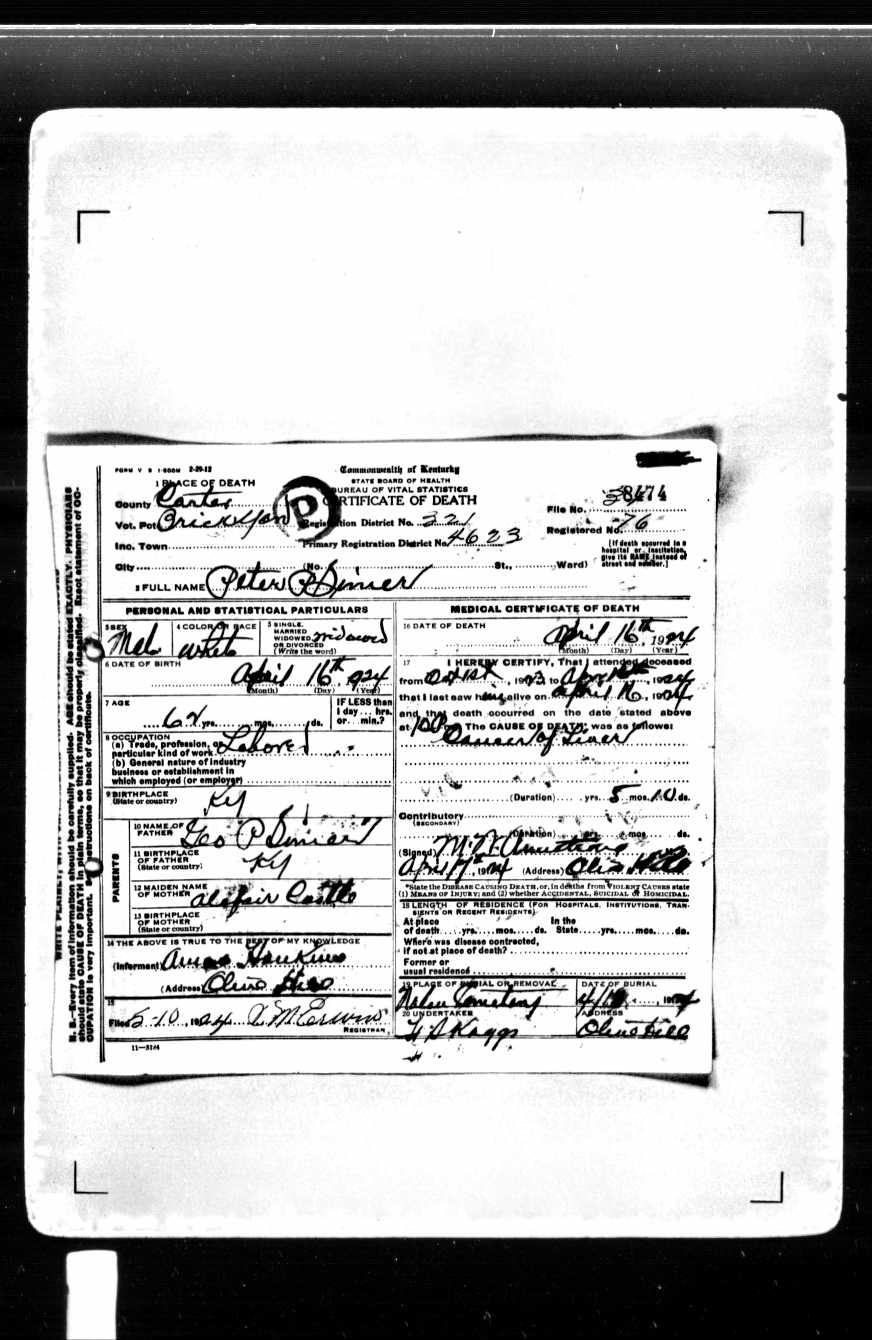 FORM V S 1-500M 2-29-12
Commonwealth of Kentucky
STATE BOARD OF HEALTH
BUREAU OF VITAL STATISTICS
CERTIFICATE OF DEATH
1 PLACE OF DEATH
County Carter
Vot. Pct.
Inc. Town
City
P
Registration District No. 321
Primary Registration District No. 4623
(No. St., Ward)
File No. 8474
Registered No. 76
[If death occurred in a hospital or institution, give its NAME instead of street and number.]
2 FULL NAME Peter P
PERSONAL AND STATISTICAL PARTICULARS
3 SEX Male
4 COLOR OR RACE white
5 SINGLE, MARRIED WIDOWED OR DIVORCED (Write the word) widowed
6 DATE OF BIRTH
April 16th, 924
(Month) (Day) (Year)
7 AGE
62 yrs. mos. ds.
IF LESS than 1 day... hrs. or... min.?
8 OCCUPATION
(a) Trade, profession, or particular kind of work Laborer
(b) General nature of industry business or establishment in which employed (or employer)
9 BIRTHPLACE (State or country) Ky
PARENTS
10 NAME OF FATHER Geo P
11 BIRTHPLACE OF FATHER (State or country) Ky
12 MAIDEN NAME OF MOTHER
13 BIRTHPLACE OF MOTHER (State or country)
14 THE ABOVE IS TRUE TO THE BEST OF MY KNOWLEDGE
(Informant)
(Address) Olive Hill
15
Filed 5-10, 1924 Erwin
REGISTRAR
11—3184
MEDICAL CERTIFICATE OF DEATH
16 DATE OF DEATH
April 16th 1924
(Month) (Day) (Year)
17 I HEREBY CERTIFY, That I attended deceased
from Oct 1st, 1923 to Apr 16th, 1924
that I last saw him alive on April 16, 1924
and that death occurred on the date stated above
at 10 P m. The CAUSE OF DEATH was as follows:
Cancer of Liver
(Duration) yrs. 5 mos. 10 ds.
Contributory
(SECONDARY)
(Duration) yrs. mos. ds.
(Signed) Armstrong
April 17th, 1924 (Address) Olive Hill
*State the DISEASE CAUSING DEATH, or, in deaths from VIOLENT CAUSES state
(1) MEANS OF INJURY; and (2) whether ACCIDENTAL, SUICIDAL or HOMICIDAL.
18 LENGTH OF RESIDENCE (FOR HOSPITALS, INSTITUTIONS, TRANSIENTS OR RECENT RESIDENTS)
At place of death yrs. mos. ds. In the State yrs. mos. ds.
Where was disease contracted,
if not at place of death?
Former or
usual residence
19 PLACE OF BURIAL OR REMOVAL
Cemetery
DATE OF BURIAL
1924
20 UNDERTAKER
Kaggs
ADDRESS
Olive Hill
N. B.—Every item of information should be carefully supplied. AGE should be stated EXACTLY. PHYSICIANS
should state CAUSE OF DEATH in plain terms, so that it may be properly classified. Exact statement of OC-
CUPATION is very important. See instructions on back of certificate.